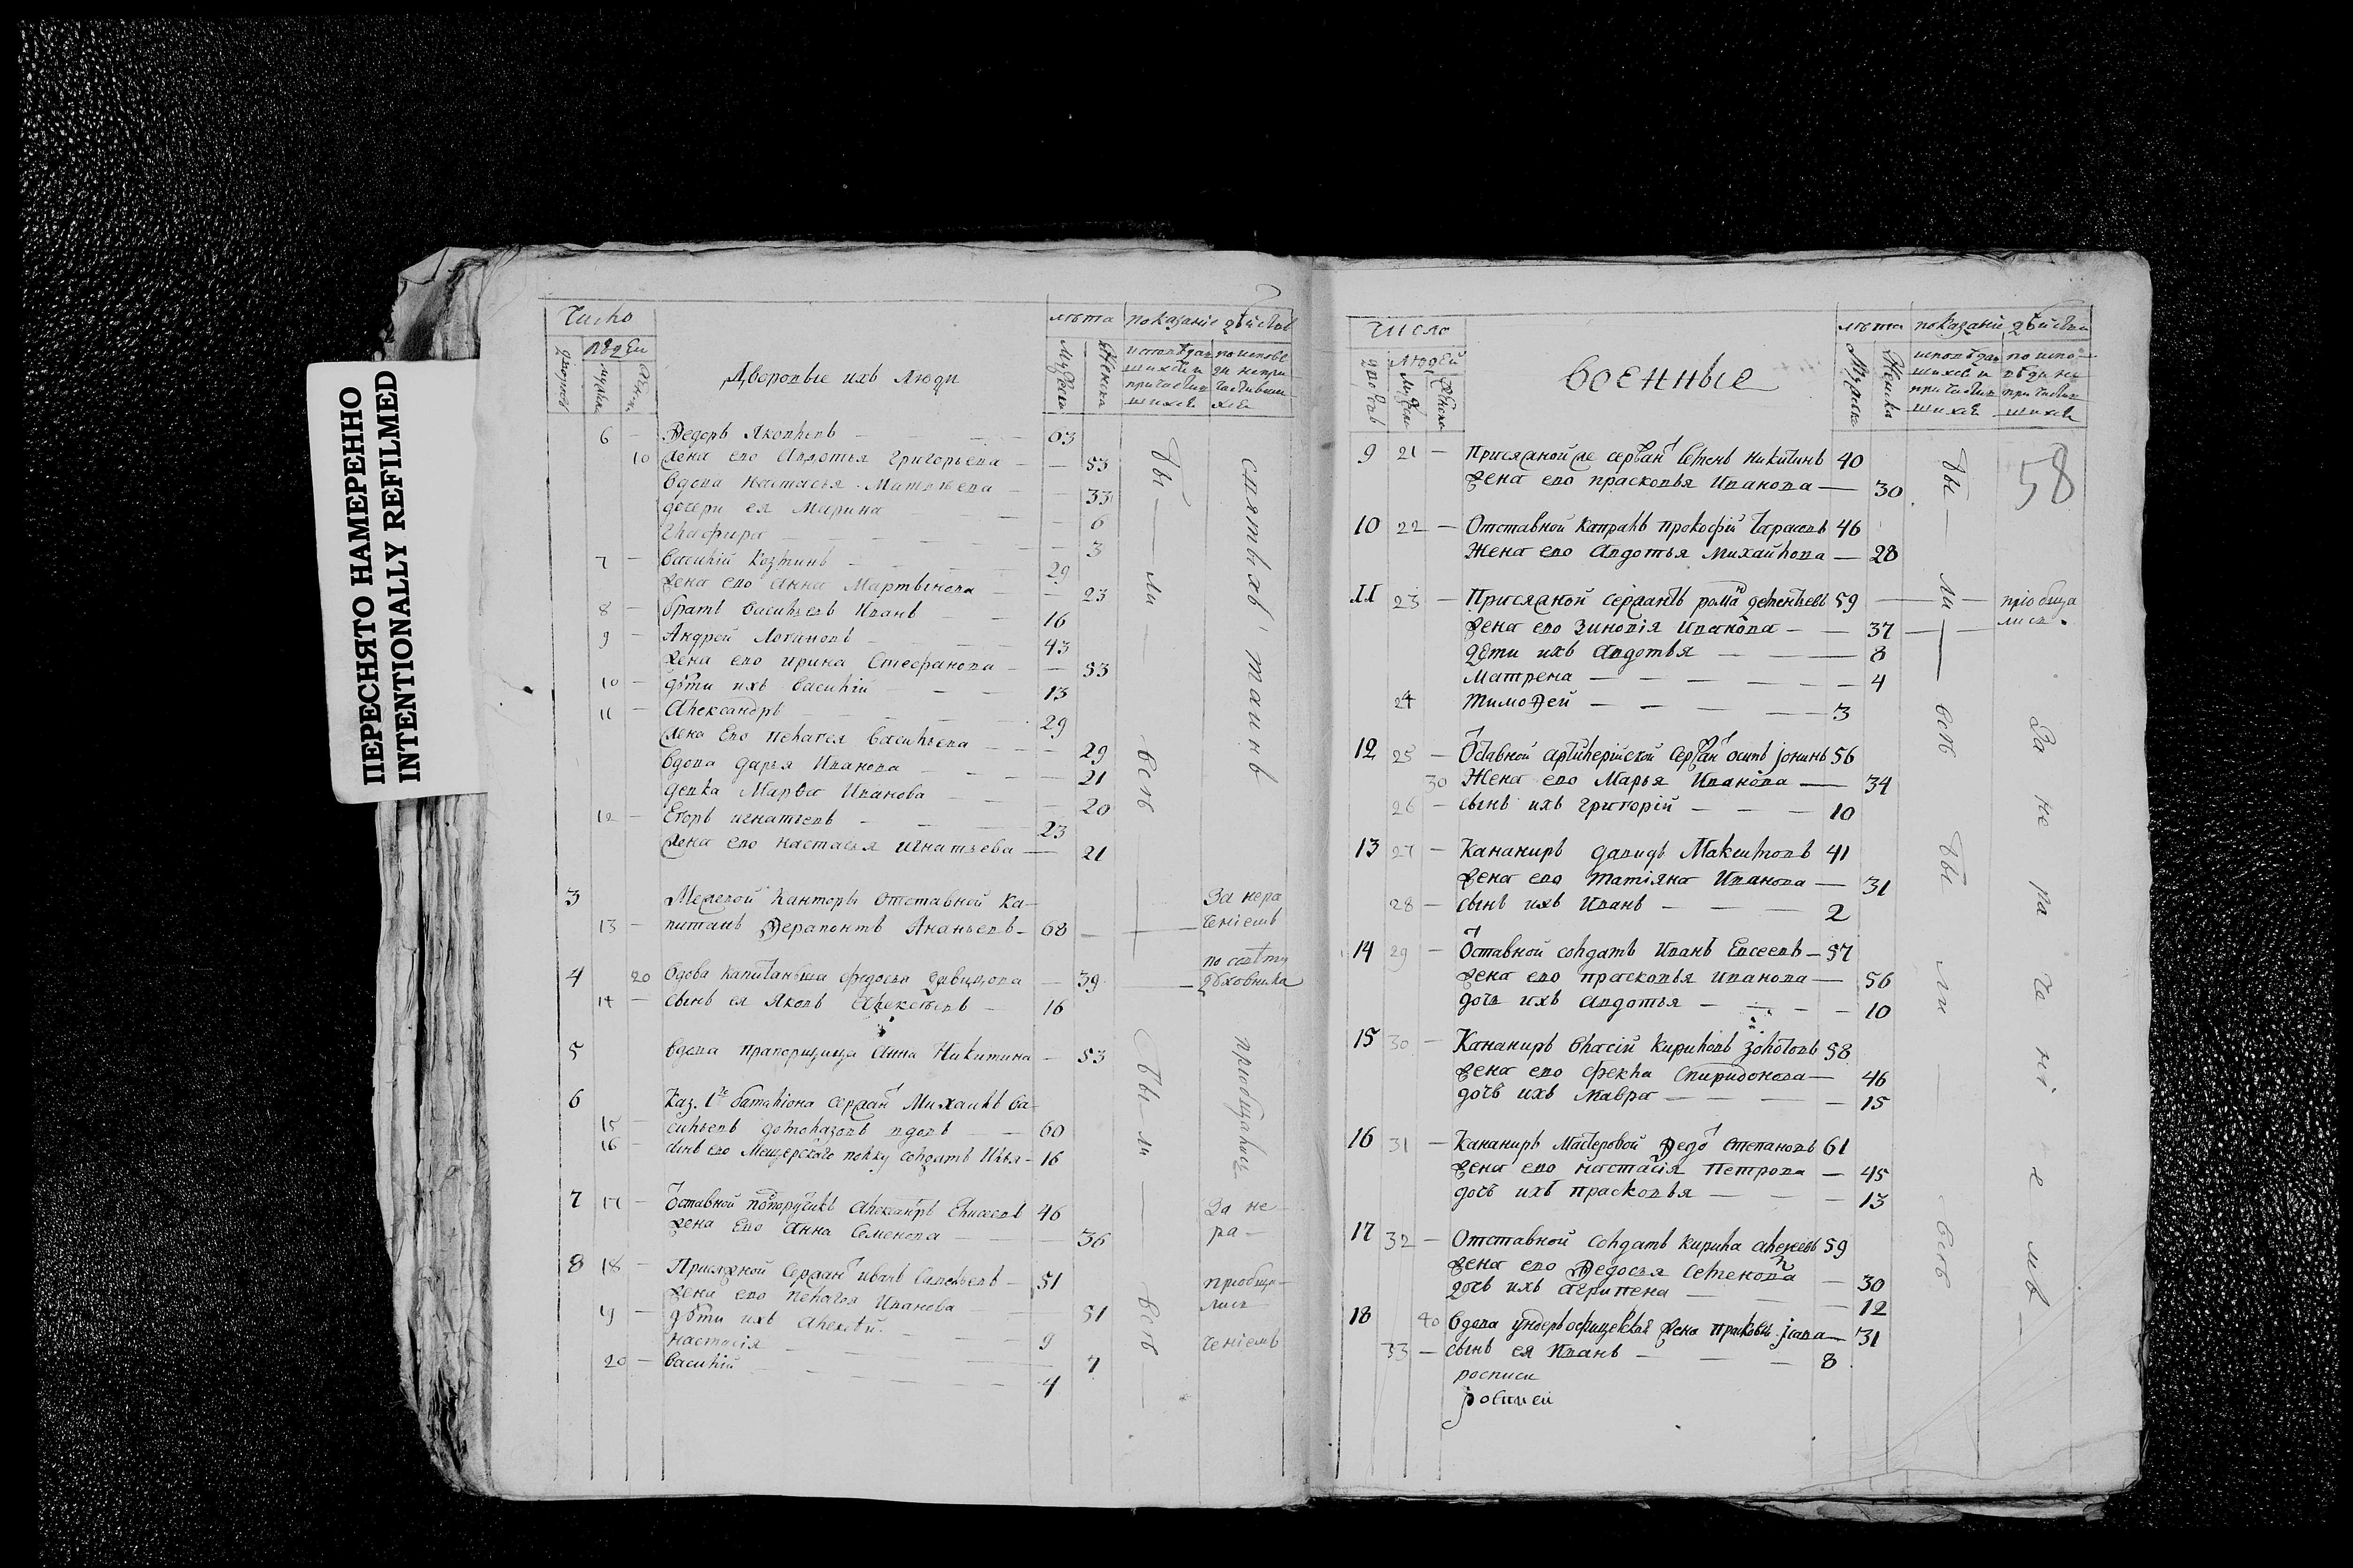 ПЕРЕСНЯТО НАМЕРЕННО
INTENTIONALLY REFILMED
Число
людей
Дворовые ихъ люди
лѣта показаніе дѣйства
6 — Ѳедоръ Яковлевъ — 63
10 жена ево Авдотья Григорьева — 53
вдова Настасья Матвѣева — 33
дочери ея Марина — 6
Глафира — 3
7 — Василій Козминъ — 29
жена ево Анна Мартынова — 23
8 — братъ Васильевъ Иванъ — 16
9 — Андрей Логиновъ — 43
жена ево Ирина Стефанова — 53
10 — дѣти ихъ Василій — 13
11 — Александръ — 29
жена ево Пелагея Васильева — 29
вдова Дарья Иванова — 21
девка Марѳа Иванова — 20
12 — Егоръ Игнатьевъ — 23
жена ево Настасья Игнатьева — 21
3 Канторы отставной ка-
13 — питанъ Ѳерапонтъ Ананьевъ — 68
4 20 вдова капитанша Федосья Давидова — 39
14 — сынъ ея Яковъ Алексѣевъ — 16
5 вдова прапорщица Анна Никитина — 53
6 Каз. 1го баталіона сержант Михаилъ Ва-
15 — сильевъ вдовъ — 60
16 — сынъ ево полку солдатъ Илья — 16
7 17 — Отставной Александръ Елисеевъ 46
жена ево Анна Семенова — 36
8 18 — Присяжной сержант Иванъ Савельевъ — 51
жена ево Пелагея Иванова — 51
19 — дѣти ихъ Алексѣй — 9
Настасія — 7
20 — Василій — 4
бы — ли — всѣ
святыхъ таинъ
за нера
ченіемъ
по совѣту
духовника
бы — ли — всѣ
за не
ра —
пріобща
лись
ченіемъ
число
людей
военные
лѣта показаніе дѣйства
58
9 21 — сержант Семенъ Никитинъ 40
жена ево Прасковья Иванова — 30
10 22 — Отставной капралъ Прокофій Тарасовъ 46
Жена ево Авдотья Михайлова — 28
11 23 — Присяжной сержантъ Романъ Дементьевъ 59
жена ево Зиновія Иванова — 37
дѣти ихъ Авдотья — 8
Матрена — 4
24 Тимоѳей — 3
12 25 — Отставной артилерійской сержант Осипъ Іонинъ 56
30 Жена ево Марья Иванова — 34
26 — сынъ ихъ Григорій — 10
13 27 — Кананиръ Давидъ Максимовъ 41
жена ево Татіяна Иванова — 31
28 — сынъ ихъ Иванъ — 2
14 29 — Отставной солдатъ Иванъ Евсеевъ — 57
жена ево Прасковья Иванова — 56
дочь ихъ Авдотья — 10
15 30 — Кананиръ Власій Кириловъ Золотовъ 58
жена ево Фекла Спиридонова — 46
дочь ихъ Мавра — 15
16 31 — Кананиръ мастеровой Ѳедот Степановъ 61
жена ево Настасія Петрова — 45
дочь ихъ Прасковья — 13
17 32 — Отставной солдатъ Кирила Алексеевъ 59
жена ево Ѳедосья Семенова — 30
дочь ихъ Агрипена — 12
18 40 Вдова ундерофицерская жена — 31
33 — сынъ ея Иванъ — 8
росписи
бы — ли — всѣ
пріобща
лись
бы — ли — всѣ
за нераченіемъ